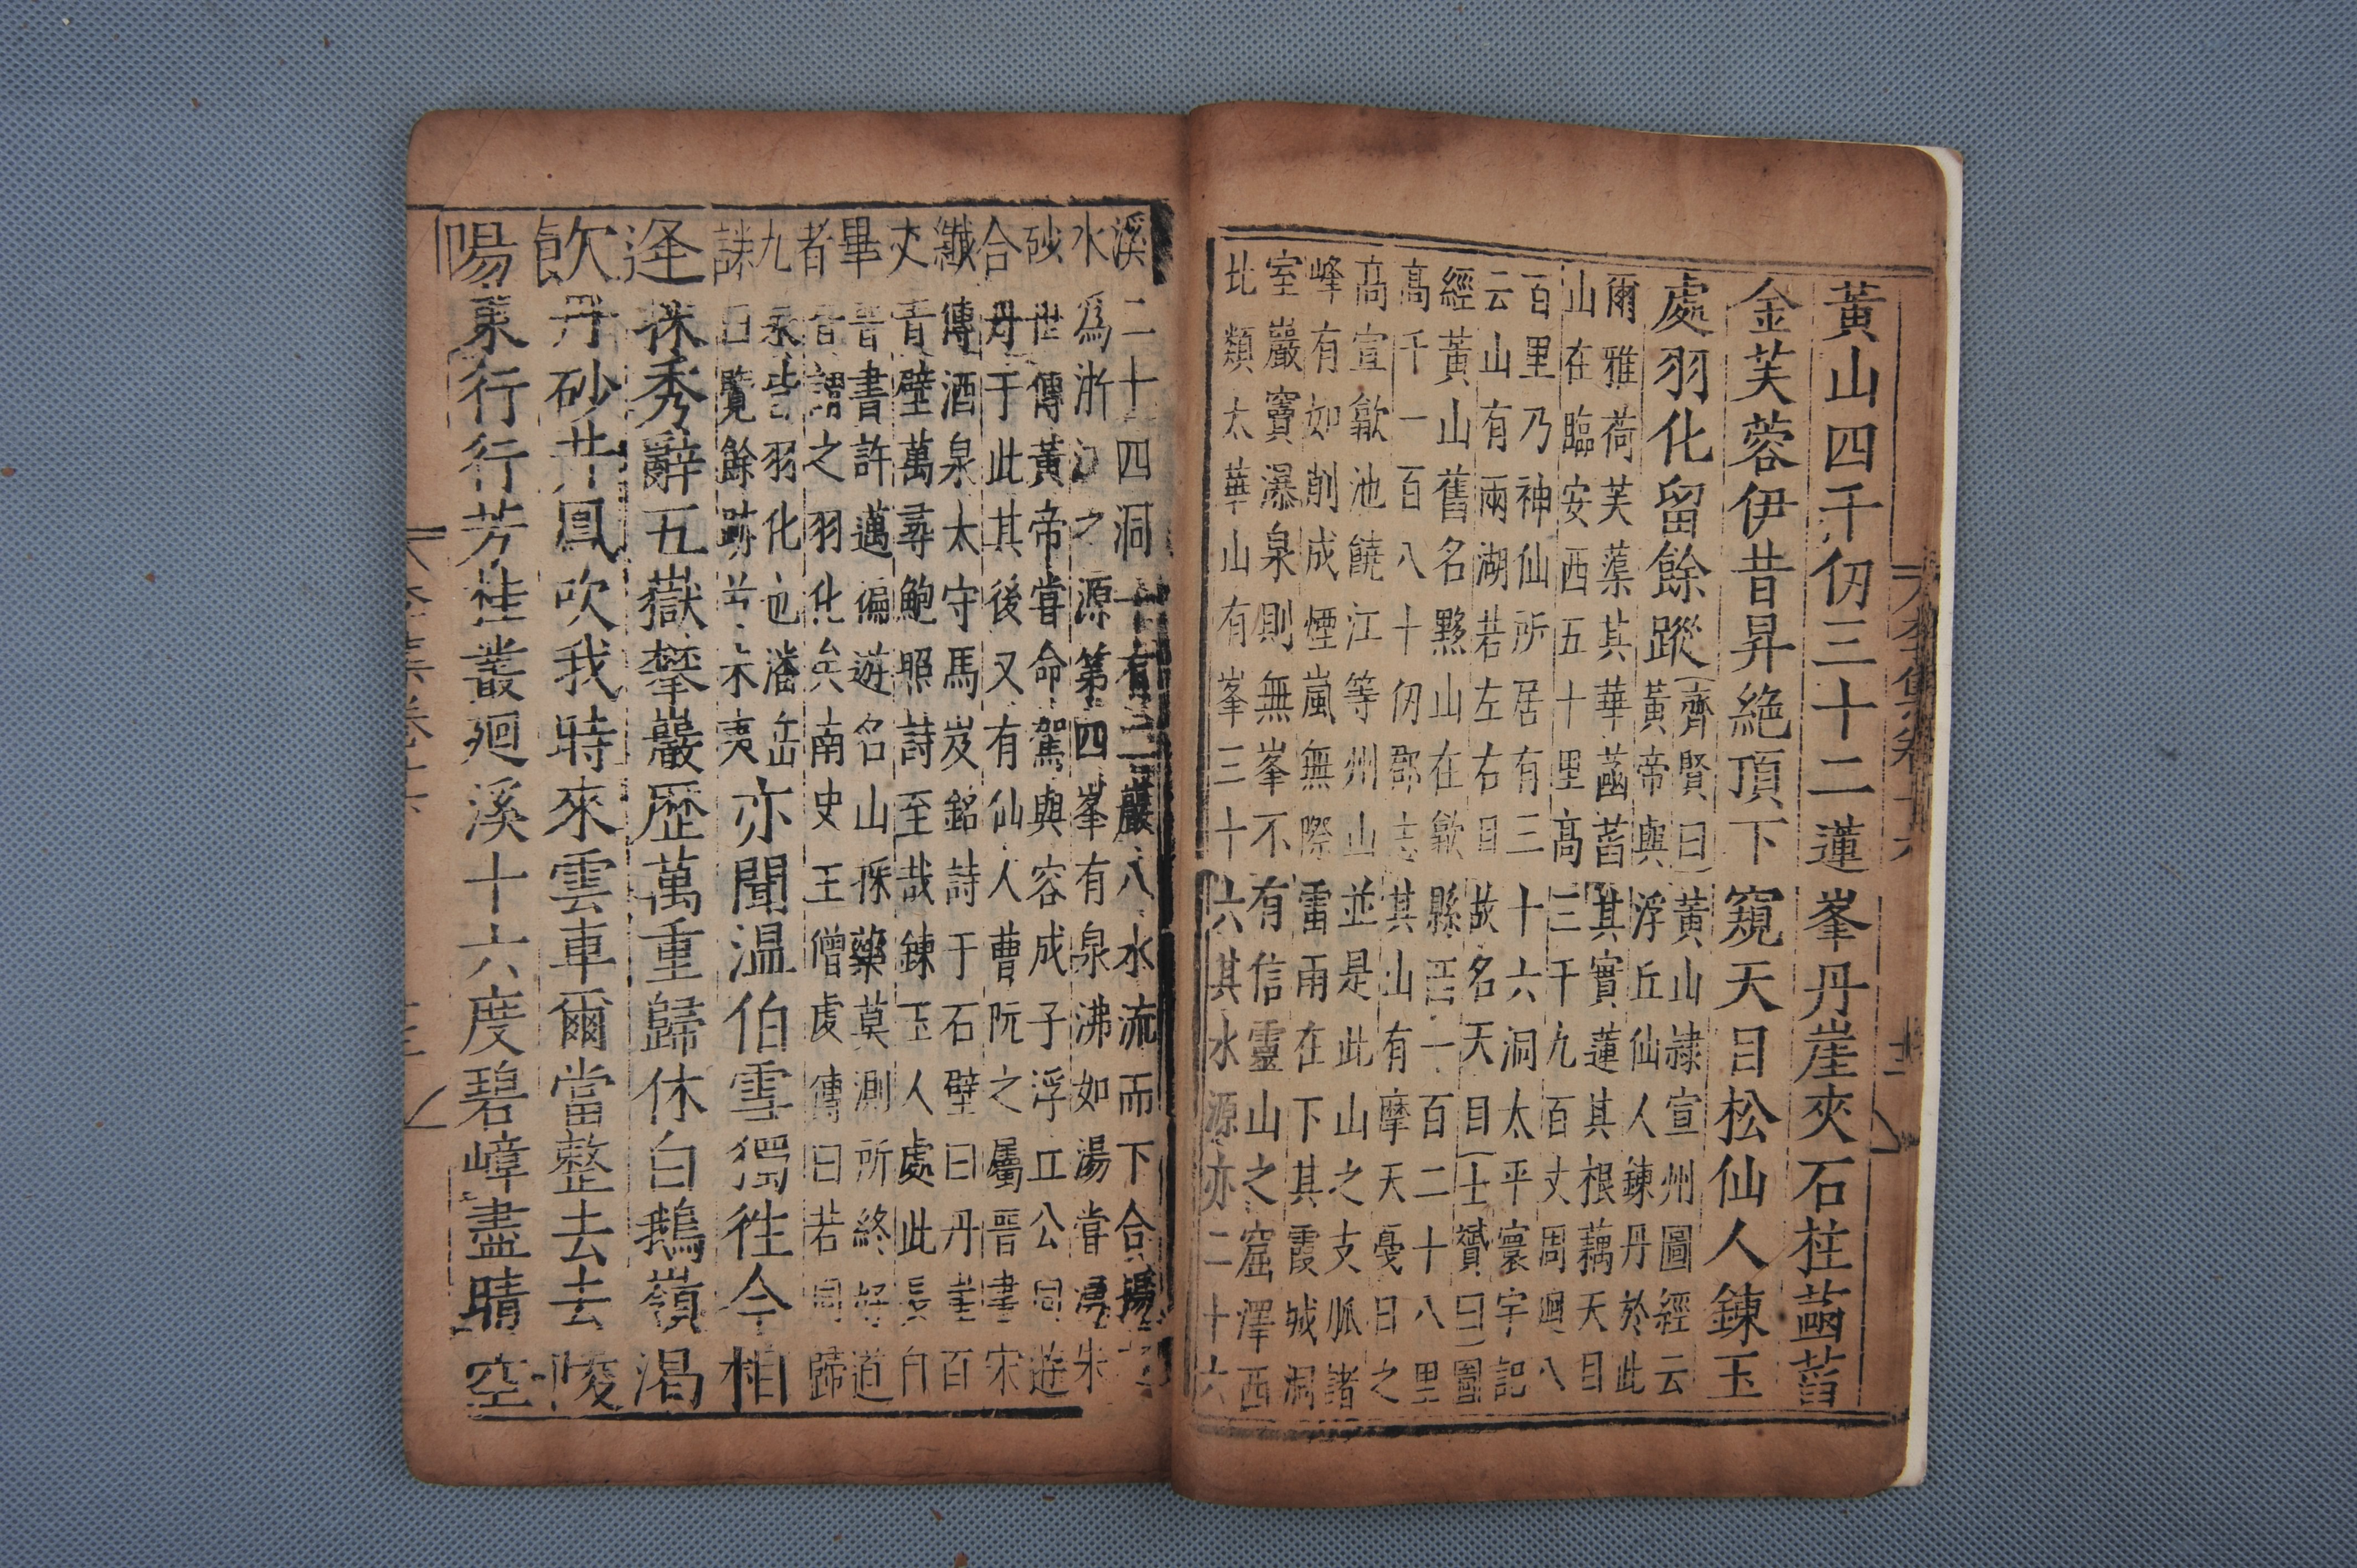 黃山四千仞三十二蓮峯丹崖夾石柱菡萏
金芙蓉伊昔昇絶頂下窺天目松仙人鍊玉
處羽化留餘蹤
齊賢曰黃山隷宣州圖經云
黃帝與浮丘仙人鍊丹於此
爾雅荷芙蕖其華菡萏其實蓮其根藕天目
山在臨安西五十里高三千九百丈周廻八
百里乃神仙所居有三十六洞太平寰宇記
云山有兩湖若左右目故名天目士贇曰圖
經黃山舊名黟山在歙縣西一百二十八里
高千一百八十仞郡志其山有摩天戞日之
高宣歙池饒江等州山並是此山之支脈諸
峰有如削成煙嵐無際雷雨在下其霞城洞
室巖竇瀑泉則無峯不有信靈山之窟澤西
北類太華山有峯三十六其水源亦二十六
溪二十四洞十有二巖八水流而下合揚
水為浙江之源第四峯有泉沸如湯甞湧朱
砂世傳黃帝甞命駕與容成子浮丘公同遊
合丹于此其後又有仙人曹阮之屬晉書宋
纖傳酒泉太守馬岌銘詩于石壁曰丹崖百
丈青壁萬尋鮑照詩至哉鍊玉人處此長自
畢晉書許邁徧遊名山採藥莫測所終好道
者皆謂之羽化矣南史王僧虔傳曰若同歸
九泉皆羽化也潘岳
誄曰覽餘跡兮未夷
亦聞温伯雪獨徃今相
逢採秀辭五嶽攀巖歷萬重歸休白鵝嶺渴
飲丹砂井鳳吹我時來雲車爾當整去去陵
陽東行行芳桂叢廻溪十六度碧嶂盡晴空